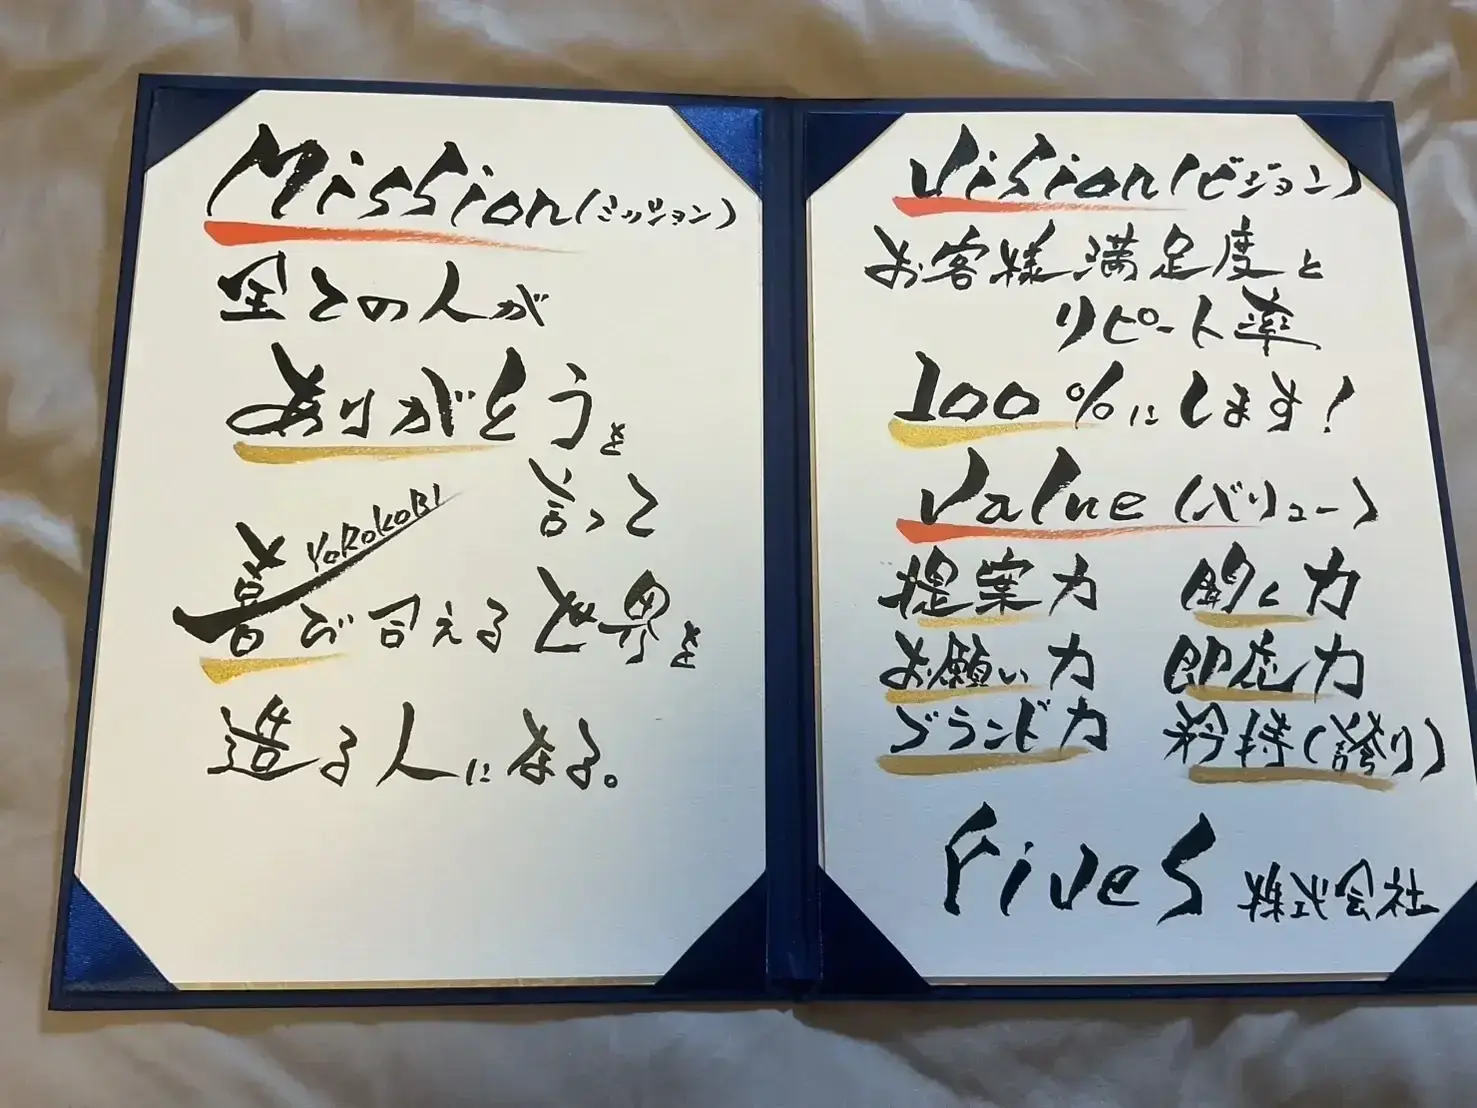 Mission(ミッション)
全ての人が
ありがとうを
言って
YOROKOBI
喜び合える世界を
造る人になる。
Vision(ビジョン)
お客様満足度と
リピート率
100%にします!
Value(バリュー)
提案力 聞く力
お願い力 即応力
ブランド力 矜持(誇り)
riveS 株式会社